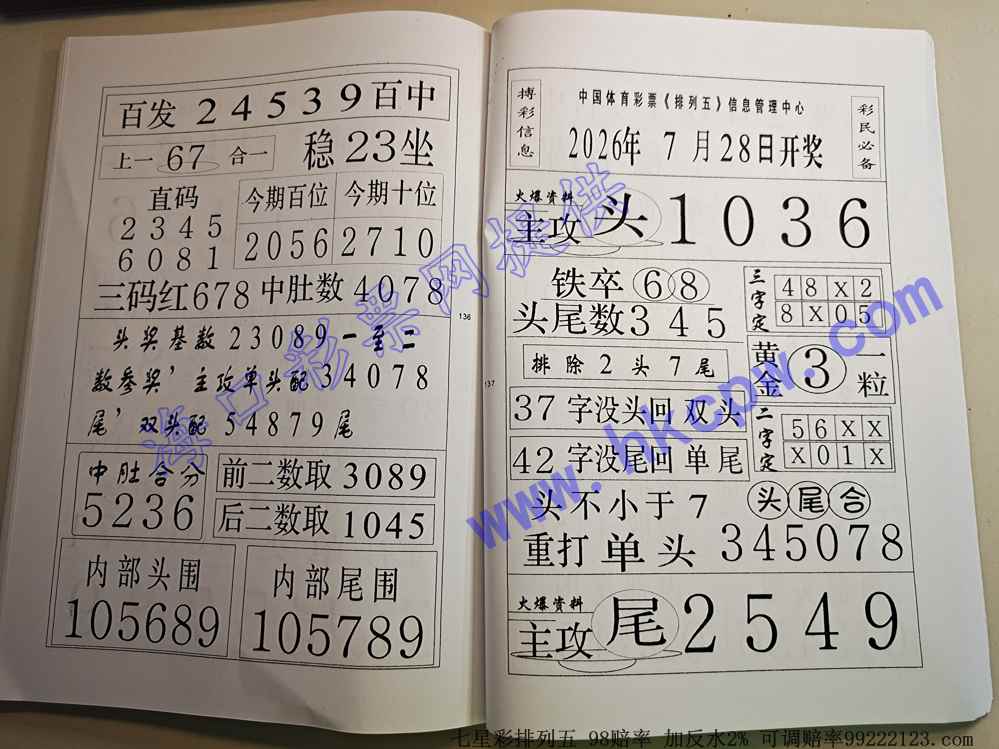 百发 24539 百中
上一 67 合一
稳 23 坐
直码
2345
6081
今期百位
2056
今期十位
2710
三码红678
中肚数 4078
头奖基数23089一至二
数参奖’主攻单头配34078
尾’双头配 54879尾
中肚合分
5236
前二数取 3089
后二数取 1045
内部头围
105689
内部尾围
105789
136
137
搏彩信息
中国体育彩票《排列五》信息管理中心
2026年 7月28日开奖
彩民必备
火爆资料
主攻 头 1036
铁卒 68
头尾数 345
三字定
48X2
8X05
排除2头7尾
黄金 3 一粒
37 字没头回 双头
42 字没尾回 单尾
二字定
56XX
X01X
头不小于7
头尾合
重打单头 345078
火爆资料
主攻 尾 2549
海口彩票网提供
www.hkcpw.com
七星彩排列五 98赔率 加反水2% 可调赔率99222123.com